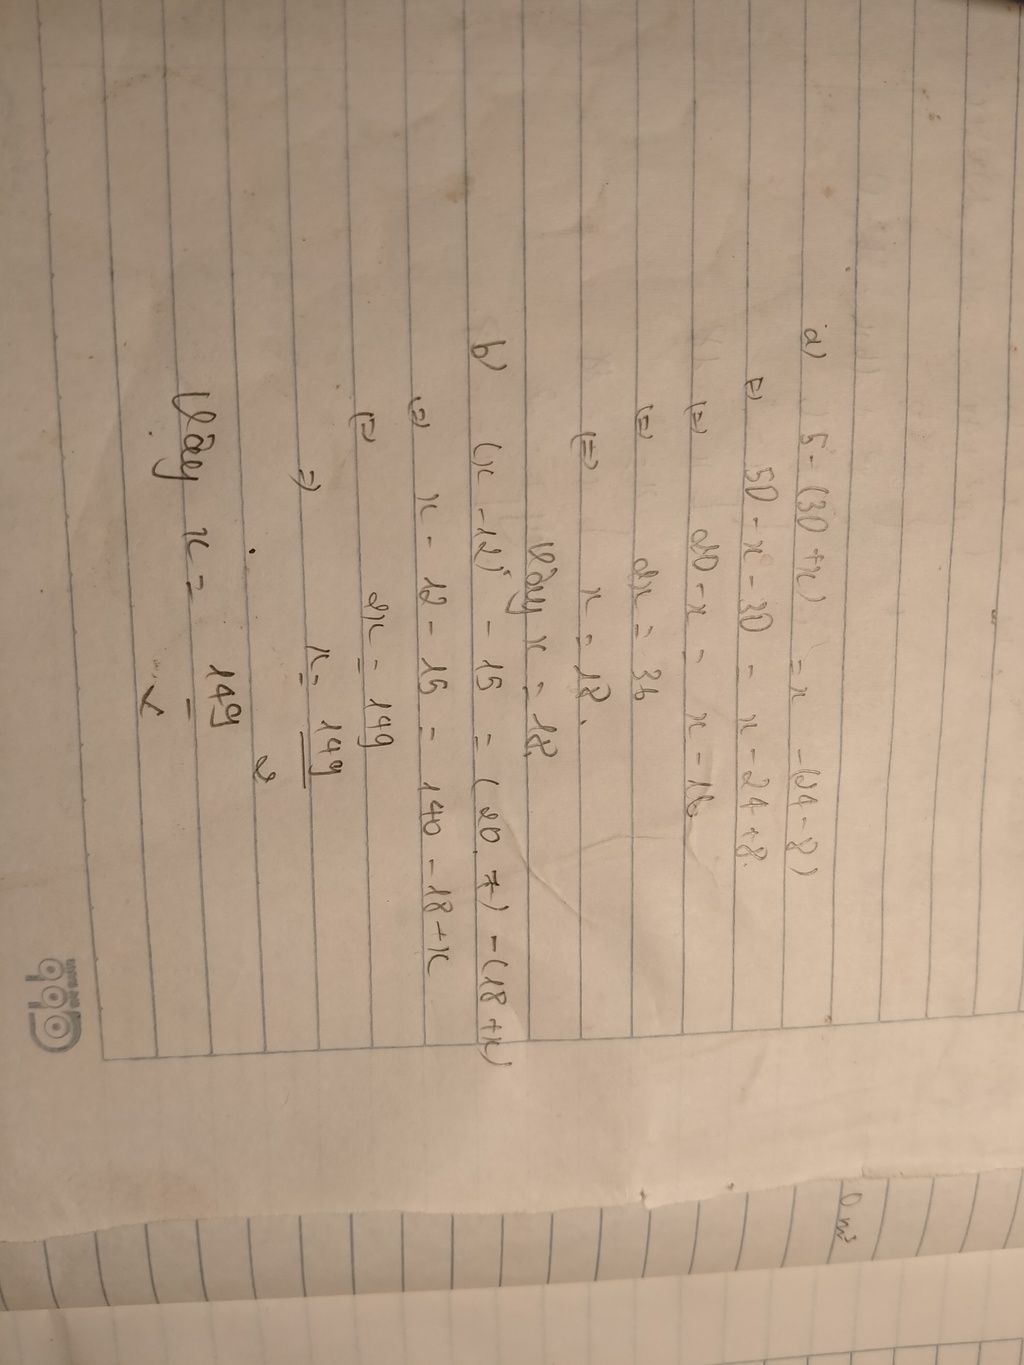 a) 5-(30+x) = x-(24-8)
(=) 50-x-30 = x-24+8.
(=) 20-x = x-16
(=) 2x = 36
(=) x = 18.
Vậy x = 18.
b) (x-12) - 15 = (20.7)-(18+x)
(=) x-12-15 = 140-18+x
(=) 2x = 149
=) x = 149
2
Vậy x = 149
2
0 m³